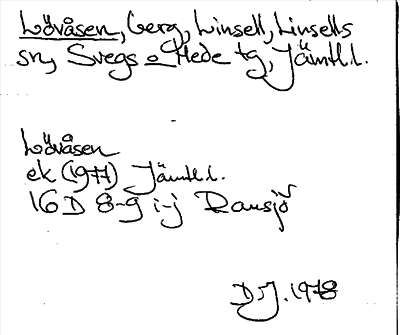 Lövåsen, berg, Linsell, Linsells
sn, Svegs o Hede tg, Jämtl.l.
Lövåsen
ek (1977) Jämtl.l.
16 D 8-9 i-j Ransjö
DJ. 1978